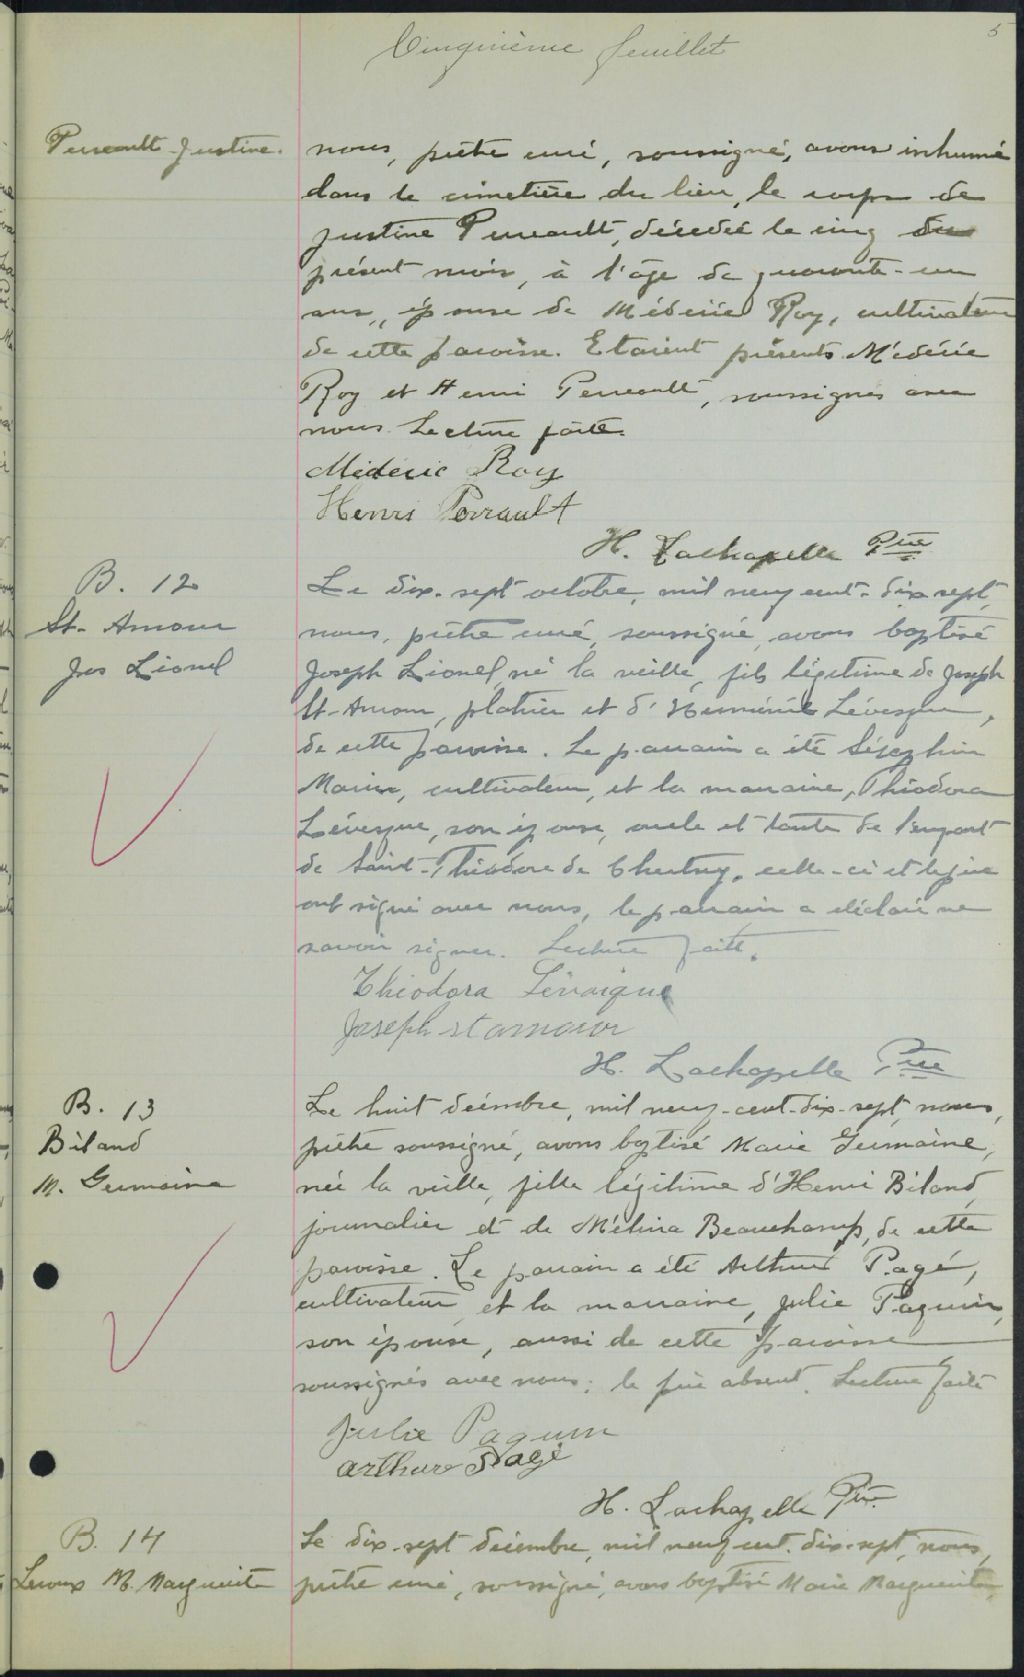 5
Cinquième feuillet
Perreault Justine.
nous, prêtre curé, soussigné, avons inhumé
dans le cimetière du lieu, le corps de
Justine Perreault, décédée le cinq du
présent mois, à l'âge de quarante-un
ans, épouse de Médéric Roy, cultivateur
de cette paroisse. Etaient présents Médéric
Roy et Henri Perreault, soussignés avec
nous. Lecture faite.
Médéric Roy
Henri Perrault
H. Lachapelle Ptre
B. 12
St-Amour
Jos Lionel
Le dix-sept octobre, mil neuf cent-dix sept,
nous, prêtre curé, soussigné, avons baptisé
Joseph Lionel, né la veille, fils légitime de Joseph
St-Amour, plâtrier et d'Herménie Lévesque,
de cette paroisse. Le parrain a été Séraphin
Morin, cultivateur, et la marraine, Théodora
Lévesque, son épouse, oncle et tante de l'enfant
de Saint-Théodore de Chertsey. celle-ci et le père
ont signé avec nous, le parrain a déclaré ne
savoir signer. Lecture faite.
Théodora Lévaique
Joseph st amour
H. Lachapelle Ptre
B. 13
Biland
M. Germaine
Le huit décembre, mil neuf-cent-dix-sept, nous,
prêtre soussigné, avons baptisé Marie Germaine,
née la veille, fille légitime d'Henri Biland,
journalier et de Mélina Beauchamp, de cette
paroisse. Le parrain a été Arthur Pagé,
cultivateur, et la marraine, Julie Paquin,
son épouse, aussi de cette paroisse
soussignés avec nous; le père absent. Lecture faite
Julie Paquin
Arthur Pagé
H. Lachapelle Ptre.
B. 14
Leroux M. Marguerite
Le dix-sept décembre, mil neuf cent. dix-sept, nous,
prêtre curé, soussigné, avons baptisé Marie Marguerite,